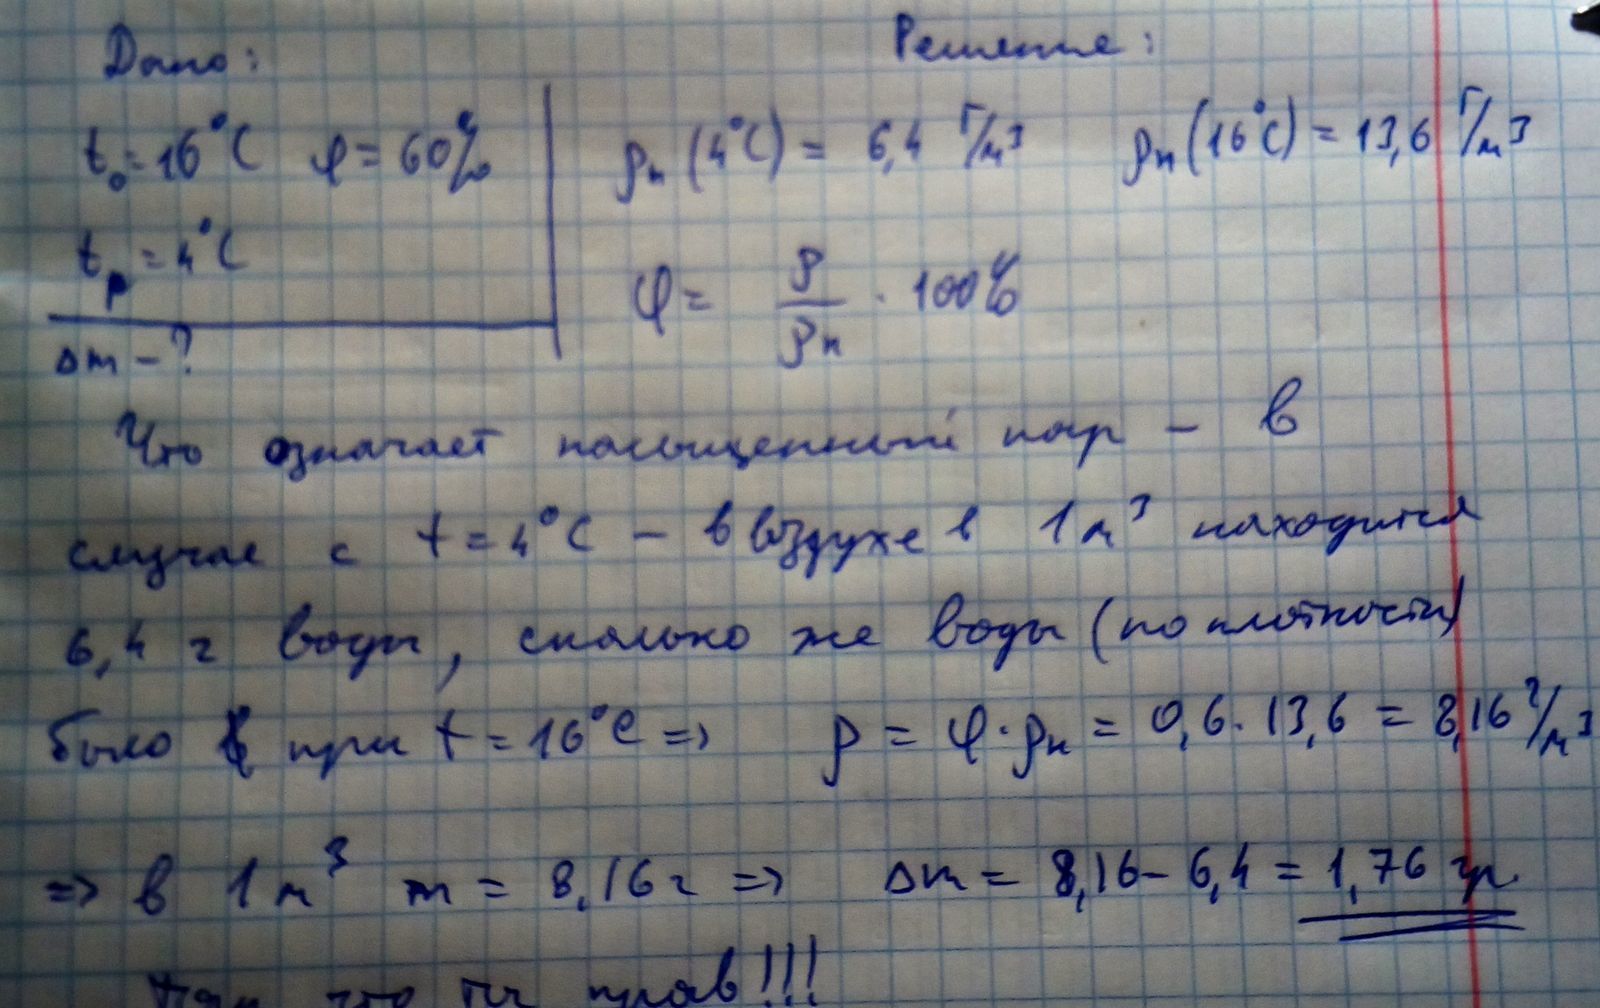 Дано: Решение:
t₀=16°C φ=60% ρн(4°C) = 6,4 г/м³ ρн(16°C) = 13,6 г/м³
tр=4°C
φ= ρ/ρн · 100%
Δm – ?
Что означает насыщенный пар – в
случае с t=4°C – в воздухе в 1м³ находится
6,4 г воды, сколько же воды (по плотности)
было при t=16°C => ρ = φ·ρн = 0,6·13,6 = 8,16 г/м³
=> в 1м³ m = 8,16г => Δm = 8,16–6,4 = 1,76 гр.
Так что ты прав!!!